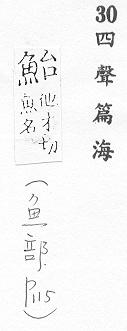 30 四聲篇海
鮐
他才切
魚名
(魚部 P115)